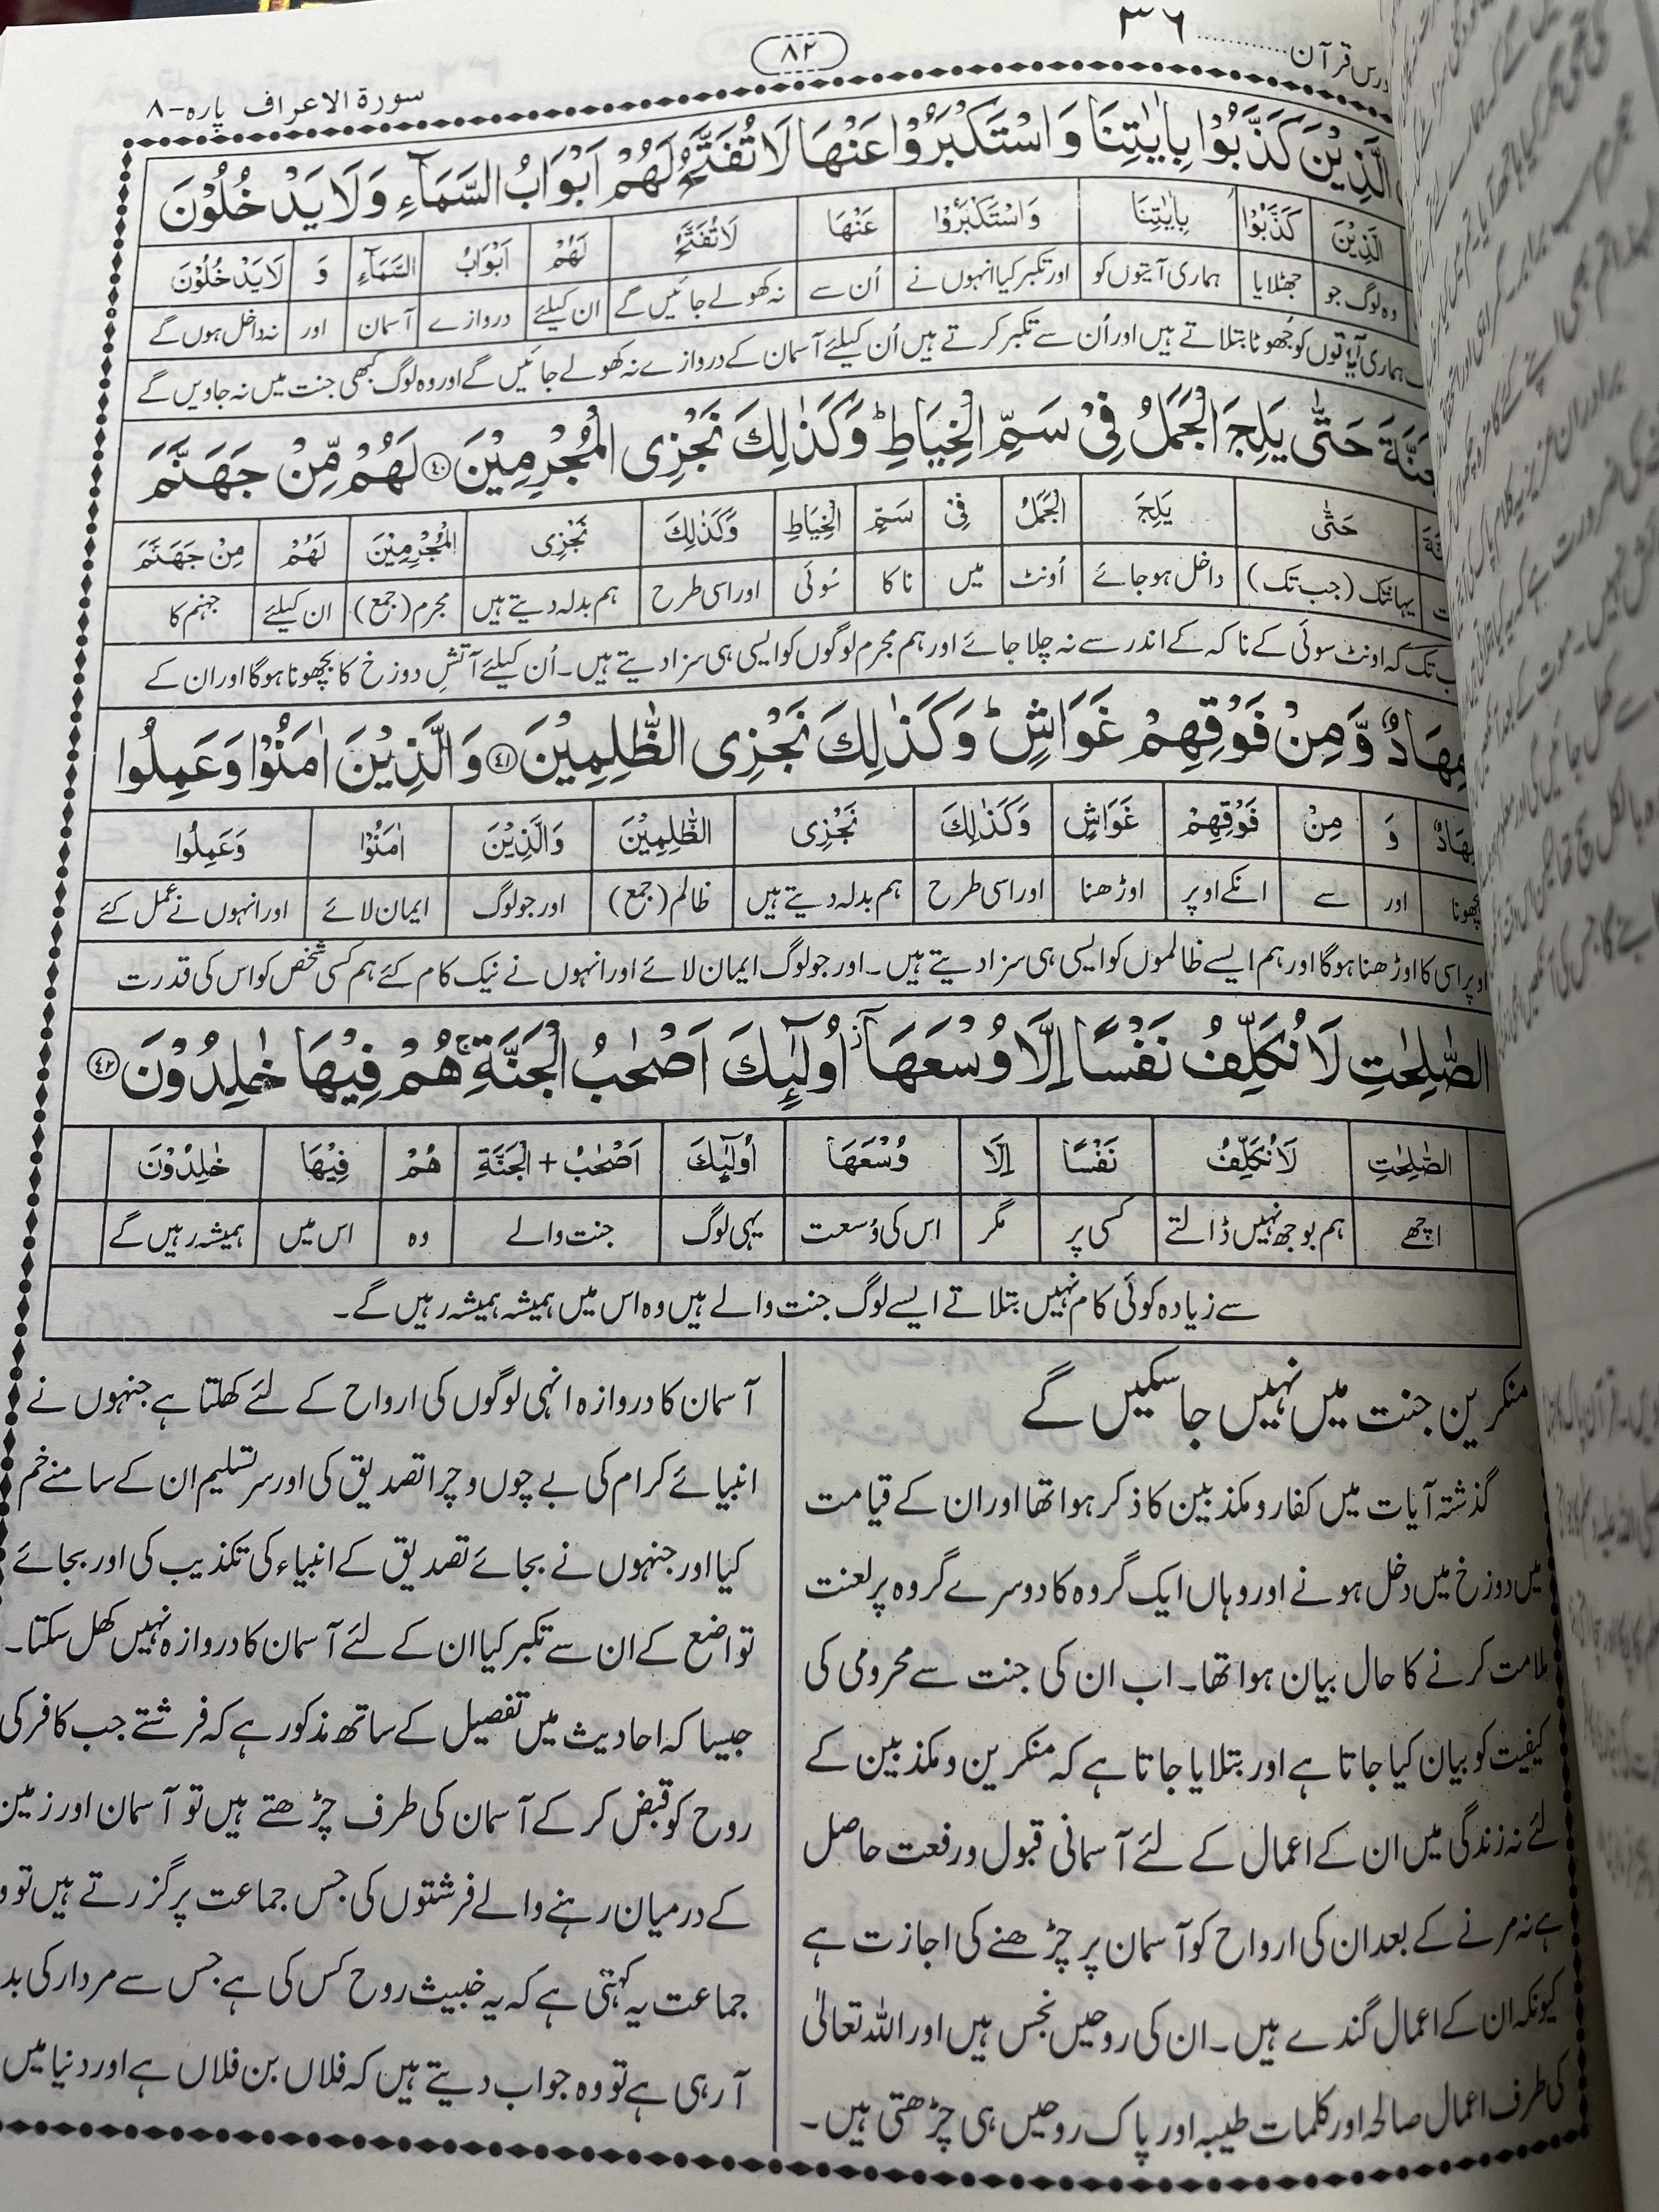 درس قرآن ............ ۳۶
۸۲
سورة الاعراف پارہ-۸
الَّذِيْنَ كَذَّبُوْا بِاٰيٰتِنَا وَ اسْتَكْبَرُوْا عَنْهَا لَا تُفَتَّحُ لَهُمْ اَبْوَابُ السَّمَآءِ وَ لَا يَدْخُلُوْنَ
الَّذِيْنَ كَذَّبُوْا بِاٰيٰتِنَا وَ اسْتَكْبَرُوْا عَنْهَا لَا تُفَتَّحُ لَهُمْ اَبْوَابُ السَّمَآءِ وَ لَا يَدْخُلُوْنَ
وہ لوگ جو جھٹلایا ہماری آیتوں کو اور تکبر کیا انہوں نے اُن سے نہ کھولے جائیں گے ان کیلئے دروازے آسمان اور نہ داخل ہوں گے
ہماری آیتوں کو جھوٹا بتلاتے ہیں اور اُن سے تکبر کرتے ہیں اُن کیلئے آسمان کے دروازے نہ کھولے جائیں گے اور وہ لوگ کبھی جنت میں نہ جاویں گے
حَتّٰى يَلِجَ الْجَمَلُ فِيْ سَمِّ الْخِيَاطِ ؕ وَ كَذٰلِكَ نَجْزِى الْمُجْرِمِيْنَ ﴿۴۰﴾ لَهُمْ مِّنْ جَهَنَّمَ
حَتّٰى يَلِجَ الْجَمَلُ فِيْ سَمِّ الْخِيَاطِ وَ كَذٰلِكَ نَجْزِى الْمُجْرِمِيْنَ لَهُمْ مِنْ جَهَنَّمَ
یہانتک (جب تک) داخل ہو جائے اُونٹ میں ناکا سُوئی اور اسی طرح ہم بدلہ دیتے ہیں مجرم (جمع) ان کیلئے جہنم کا
تک کہ اونٹ سوئی کے ناکہ کے اندر سے نہ چلا جائے اور ہم مجرم لوگوں کو ایسی ہی سزا دیتے ہیں۔ اُن کیلئے آتشِ دوزخ کا بچھونا ہوگا اور ان کے
مِهَادٌ وَّ مِنْ فَوْقِهِمْ غَوَاشٍ ؕ وَ كَذٰلِكَ نَجْزِى الظّٰلِمِيْنَ ﴿۴۱﴾ وَ الَّذِيْنَ اٰمَنُوْا وَ عَمِلُوا
مِهَادٌ وَ مِنْ فَوْقِهِمْ غَوَاشٍ وَ كَذٰلِكَ نَجْزِى الظّٰلِمِيْنَ وَ الَّذِيْنَ اٰمَنُوْا وَ عَمِلُوا
بچھونا اور سے انکے اوپر اوڑھنا اور اسی طرح ہم بدلہ دیتے ہیں ظالم (جمع) اور جو لوگ ایمان لائے اور انہوں نے عمل کئے
اوپر اسی کا اوڑھنا ہوگا اور ہم ایسے ظالموں کو ایسی ہی سزا دیتے ہیں۔ اور جو لوگ ایمان لائے اور انہوں نے نیک کام کئے ہم کسی شخص کو اس کی قدرت
الصّٰلِحٰتِ لَا نُكَلِّفُ نَفْسًا اِلَّا وُسْعَهَاۤ ز اُولٰٓئِكَ اَصْحٰبُ الْجَنَّةِ ۚ هُمْ فِيْهَا خٰلِدُوْنَ ﴿۴۲﴾
الصّٰلِحٰتِ لَا نُكَلِّفُ نَفْسًا اِلَّا وُسْعَهَا اُولٰٓئِكَ اَصْحٰبُ + الْجَنَّةِ هُمْ فِيْهَا خٰلِدُوْنَ
اچھے ہم بوجھ نہیں ڈالتے کسی پر مگر اس کی وُسعت یہی لوگ جنت والے وہ اس میں ہمیشہ رہیں گے
سے زیادہ کوئی کام نہیں بتلاتے ایسے لوگ جنت والے ہیں وہ اس میں ہمیشہ ہمیشہ رہیں گے۔
منکرین جنت میں نہیں جا سکیں گے
گذشتہ آیات میں کفار و مکذبین کا ذکر ہوا تھا اور ان کے قیامت
میں دوزخ میں دخل ہونے اور وہاں ایک گروہ کا دوسرے گروہ پر لعنت
ملامت کرنے کا حال بیان ہوا تھا۔ اب ان کی جنت سے محرومی کی
کیفیت کو بیان کیا جاتا ہے اور بتلایا جاتا ہے کہ منکرین و مکذبین کے
لئے نہ زندگی میں ان کے اعمال کے لئے آسمانی قبول و رفعت حاصل
ہے نہ مرنے کے بعد ان کی ارواح کو آسمان پر چڑھنے کی اجازت ہے
کیونکہ ان کے اعمال گندے ہیں۔ ان کی روحیں نجس ہیں اور اللہ تعالیٰ
کی طرف اعمال صالحہ اور کلمات طیبہ اور پاک روحیں ہی چڑھتی ہیں۔
آسمان کا دروازہ انہی لوگوں کی ارواح کے لئے کھلتا ہے جنہوں نے
انبیائے کرام کی بے چوں و چرا تصدیق کی اور سر تسلیم ان کے سامنے خم
کیا اور جنہوں نے بجائے تصدیق کے انبیاء کی تکذیب کی اور بجائے
تواضع کے ان سے تکبر کیا ان کے لئے آسمان کا دروازہ نہیں کھل سکتا۔
جیسا کہ احادیث میں تفصیل کے ساتھ مذکور ہے کہ فرشتے جب کافر کی
روح کو قبض کر کے آسمان کی طرف چڑھتے ہیں تو آسمان اور زمین
کے درمیان رہنے والے فرشتوں کی جس جماعت پر گزرتے ہیں تو
جماعت یہ کہتی ہے کہ یہ خبیث روح کس کی ہے جس سے مردار کی
آرہی ہے تو وہ جواب دیتے ہیں کہ فلاں بن فلاں ہے اور دنیا میں